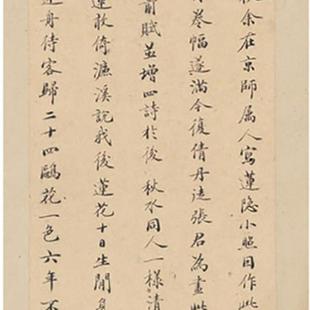 余在京師属人寫蓮隐小照因作此
卷幅遂滿今復倩丹徒張君為畫此
前賦並增四詩於後秋水同人一樣清
蓮敢倚濂溪説我後蓮花十日生閒身
身侍客歸二十四鷗花一色六年不